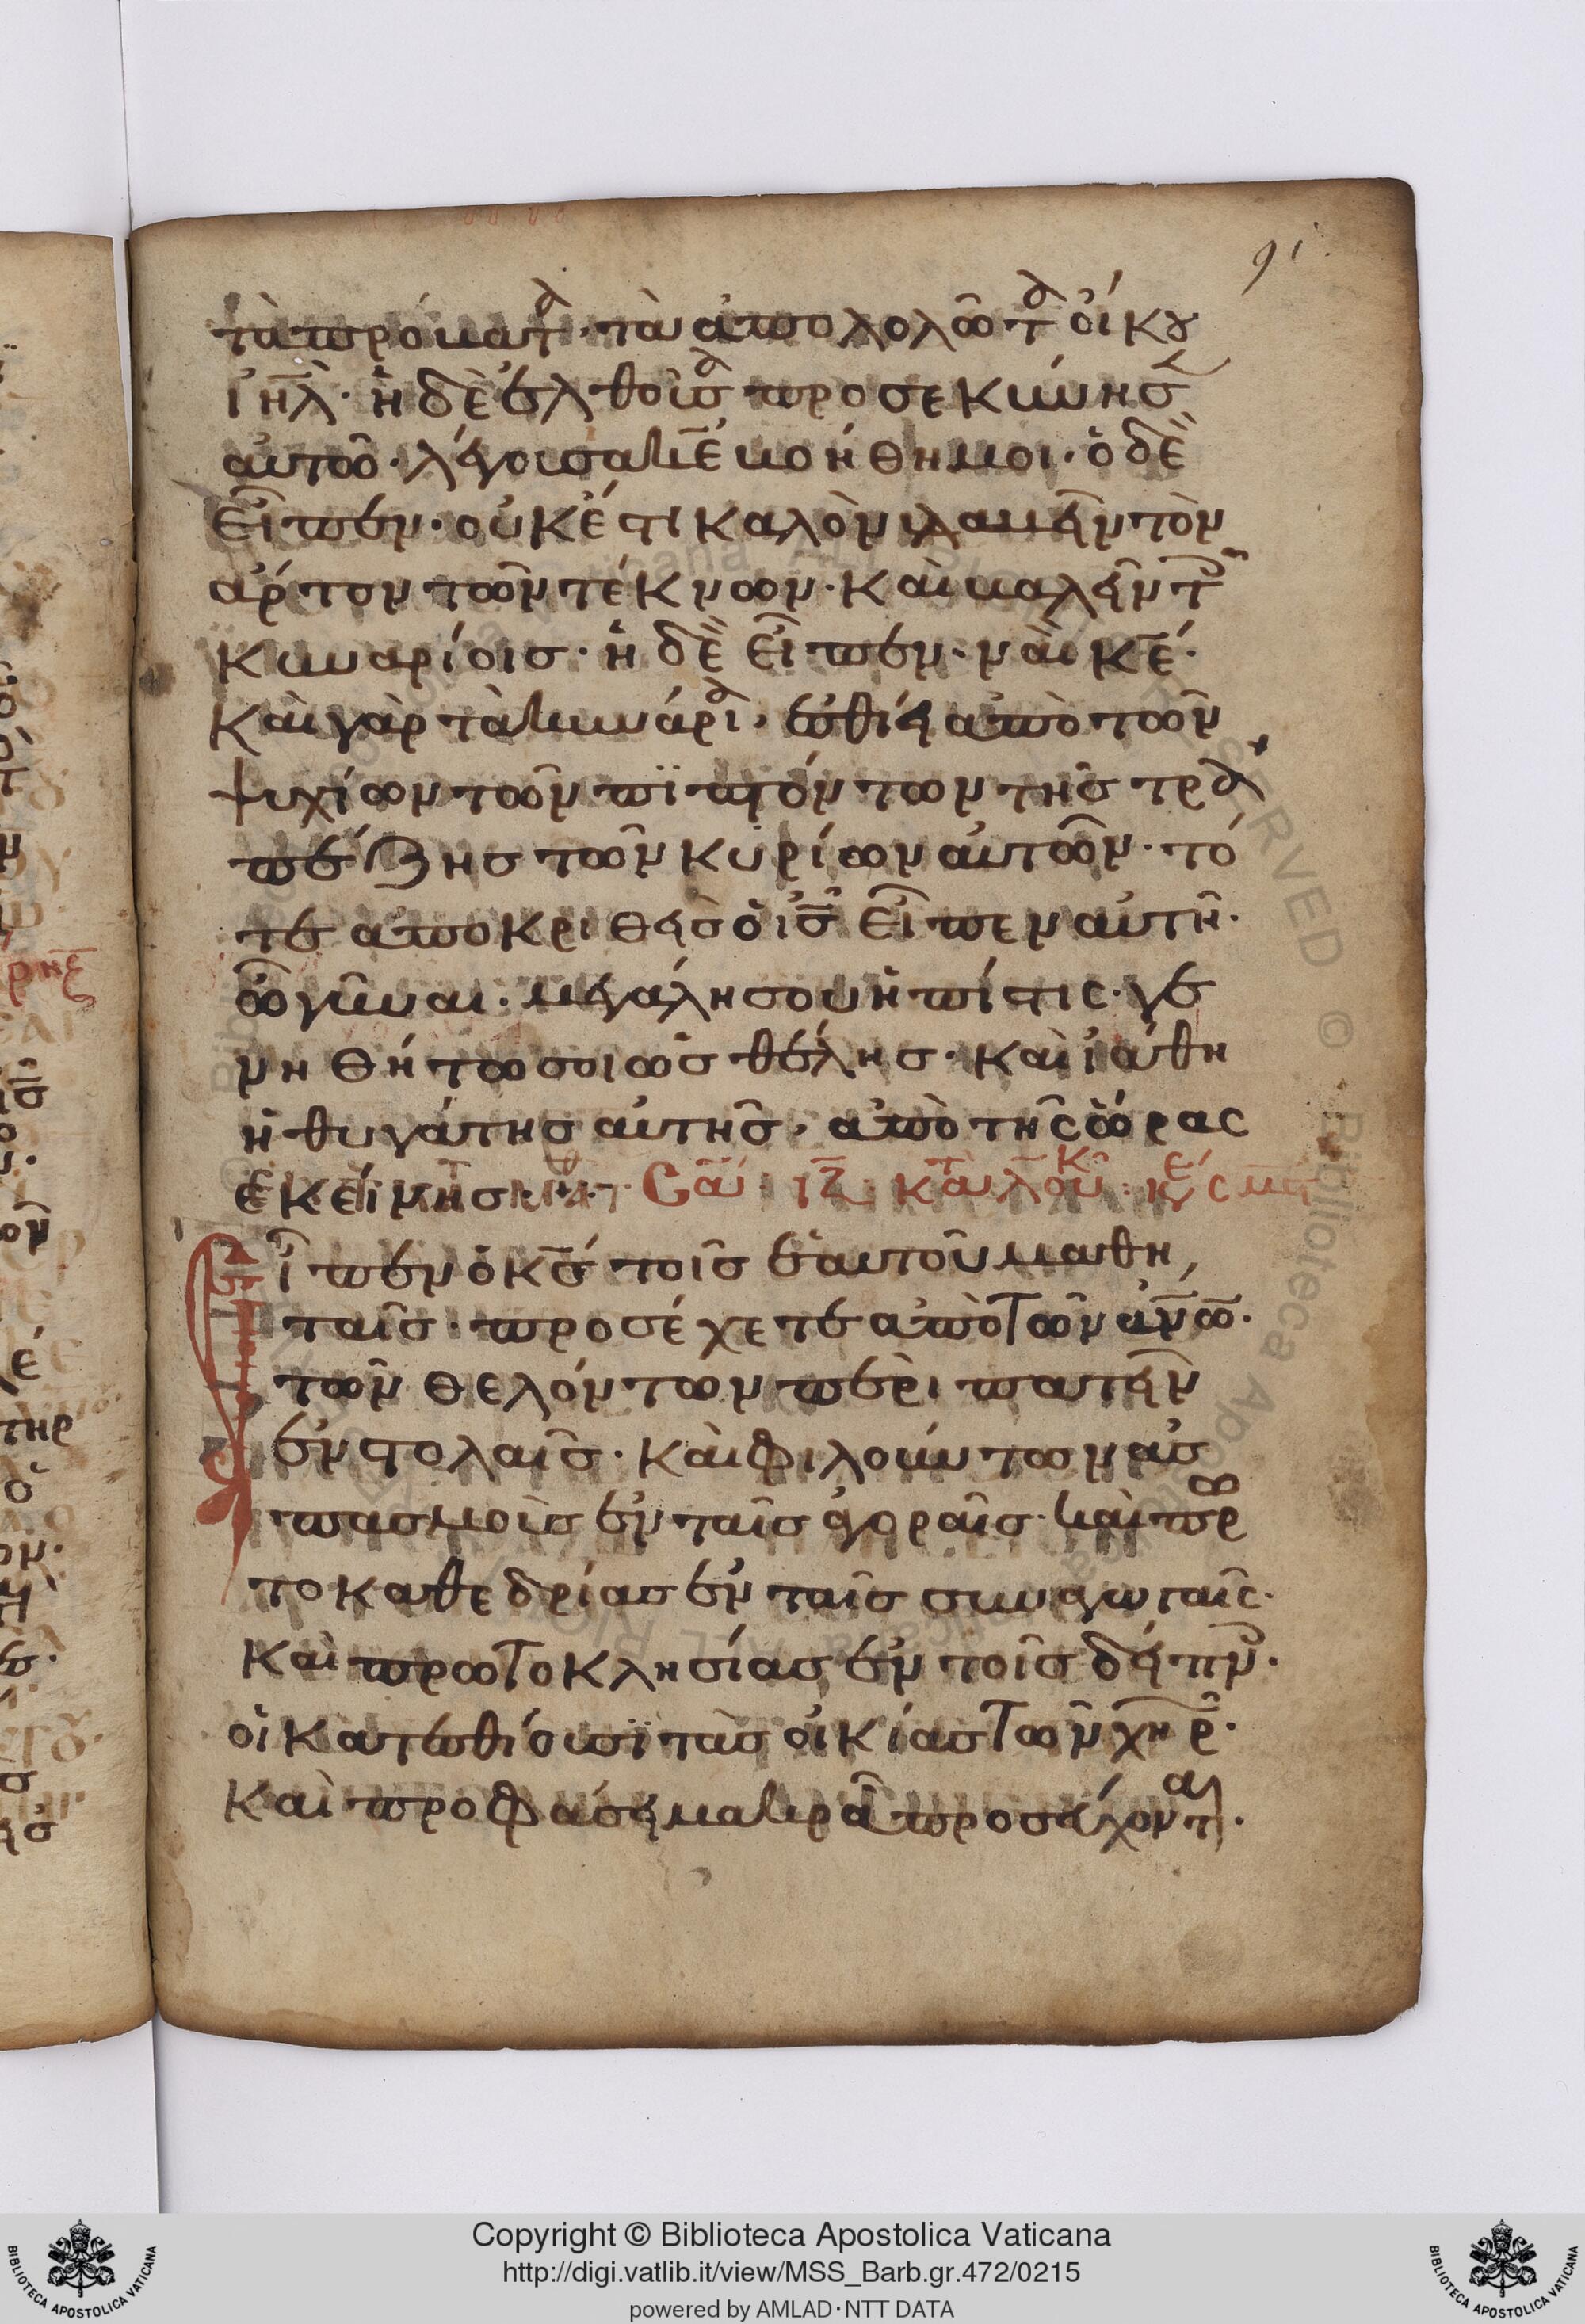 91
τὰ πρόβατα τὰ ἀπολολῶτα οἴκου
ἰηλ· ἡ δὲ ἐλθοῦσα προσεκύνησ
αὐτῶ· λέγουσα κε βοήθη μοι· ὁ δὲ
εἶπεν· οὐκ ἔστι καλὸν λαβεῖν τὸν
ἄρτον τῶν τέκνων· καὶ βαλεῖν τοῖς
κυναρίοις· ἡ δὲ εἶπεν· ναὶ κε·
καὶ γὰρ τὰ κυνάρια· ἐσθίει ἀπὸ τῶν
ψυχίων τῶν πιπτόντων τῆς τρα
πέζης τῶν κυρίων αὐτῶν· τό
τε ἀποκριθεὶς ὁ ις εἶπεν αὐτῆ·
ὦ γύναι· μεγάλη σου ἡ πίστις· γε
νηθήτω σοι ὡς θέλης· καὶ ἰάθη
ἡ θυγάτης αὐτῆς· ἀπὸ τῆς ὥρας
ἐκείνης·
εἶπεν ὁ κς τοῖς ἑαυτοῦ μαθη
ταῖς· προσέχετε ἀπὸ τῶν ανων·
τῶν θελόντων περιπατεῖν
ἐν στολαῖς· καὶ φιλούντων ἀσ
πασμοὺς ἐν ταῖς ἀγοραῖς· καὶ πρω
τοκαθεδρίας ἐν ταῖς συναγωγαῖς·
καὶ πρωτοκλησίας ἐν τοῖς δείπν·
οἱ κατεσθίουσι τὰς οἰκίας τῶν χηρ·
καὶ προφάσει μακρᾶ προσεύχονται·
Copyright © Biblioteca Apostolica Vaticana
http://digi.vatlib.it/view/MSS_Barb.gr.472/0215
powered by AMLAD·NTT DATA
BIBLIOTECA APOSTOLICA VATICANA
BIBLIOTECA APOSTOLICA VATICANA